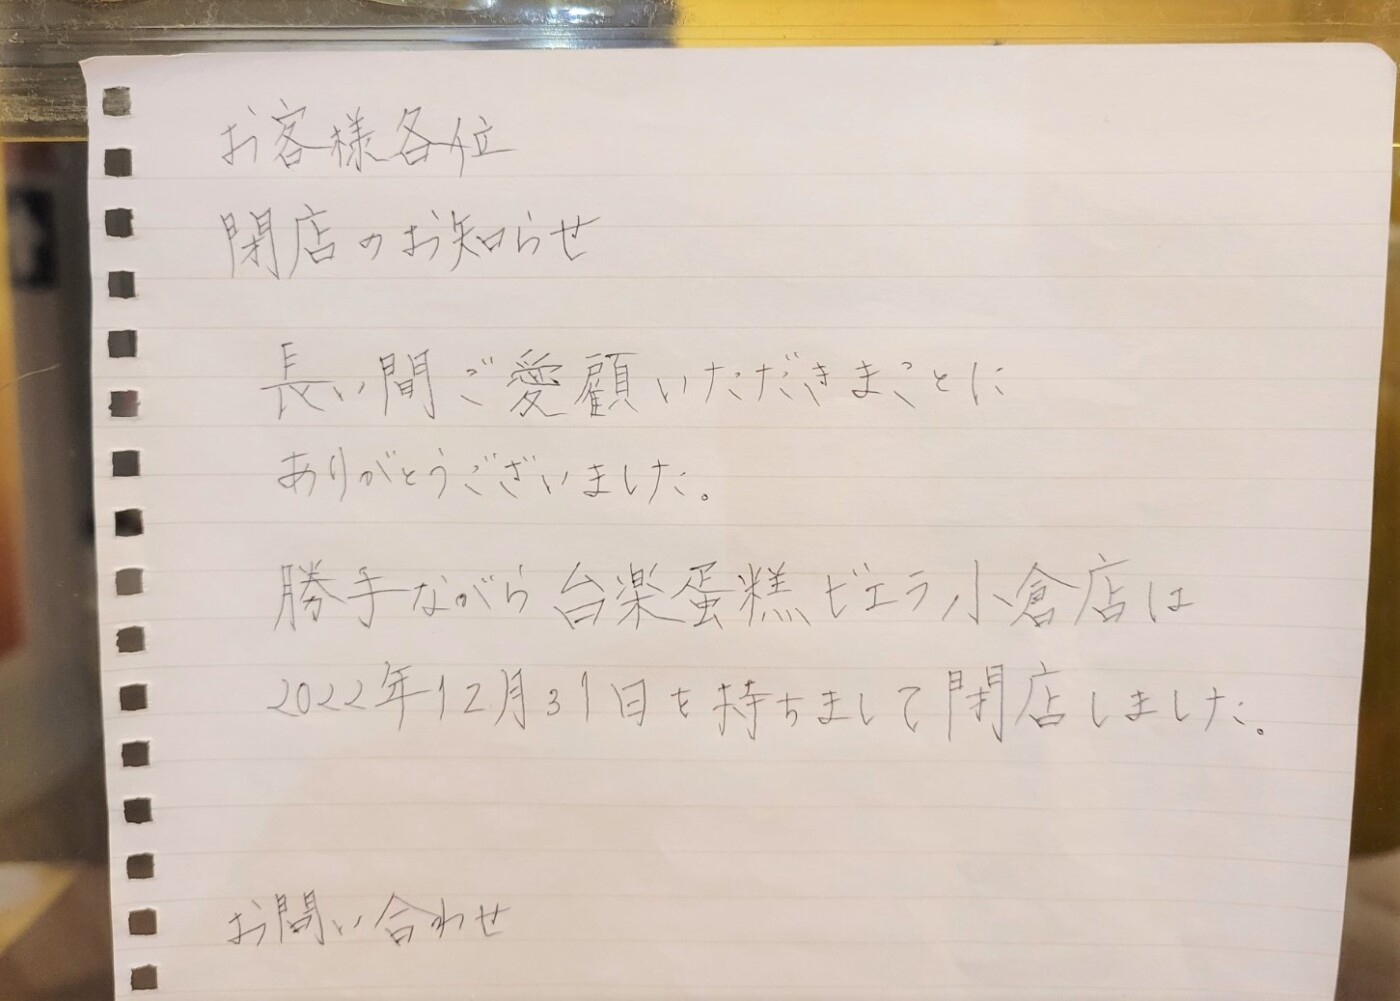 お客様各位
閉店のお知らせ
長い間ご愛顧いただきまことに
ありがとうございました。
勝手ながら台楽蛋糕ビエラ小倉店は
2022年12月31日を持ちまして閉店しました。
お問い合わせ